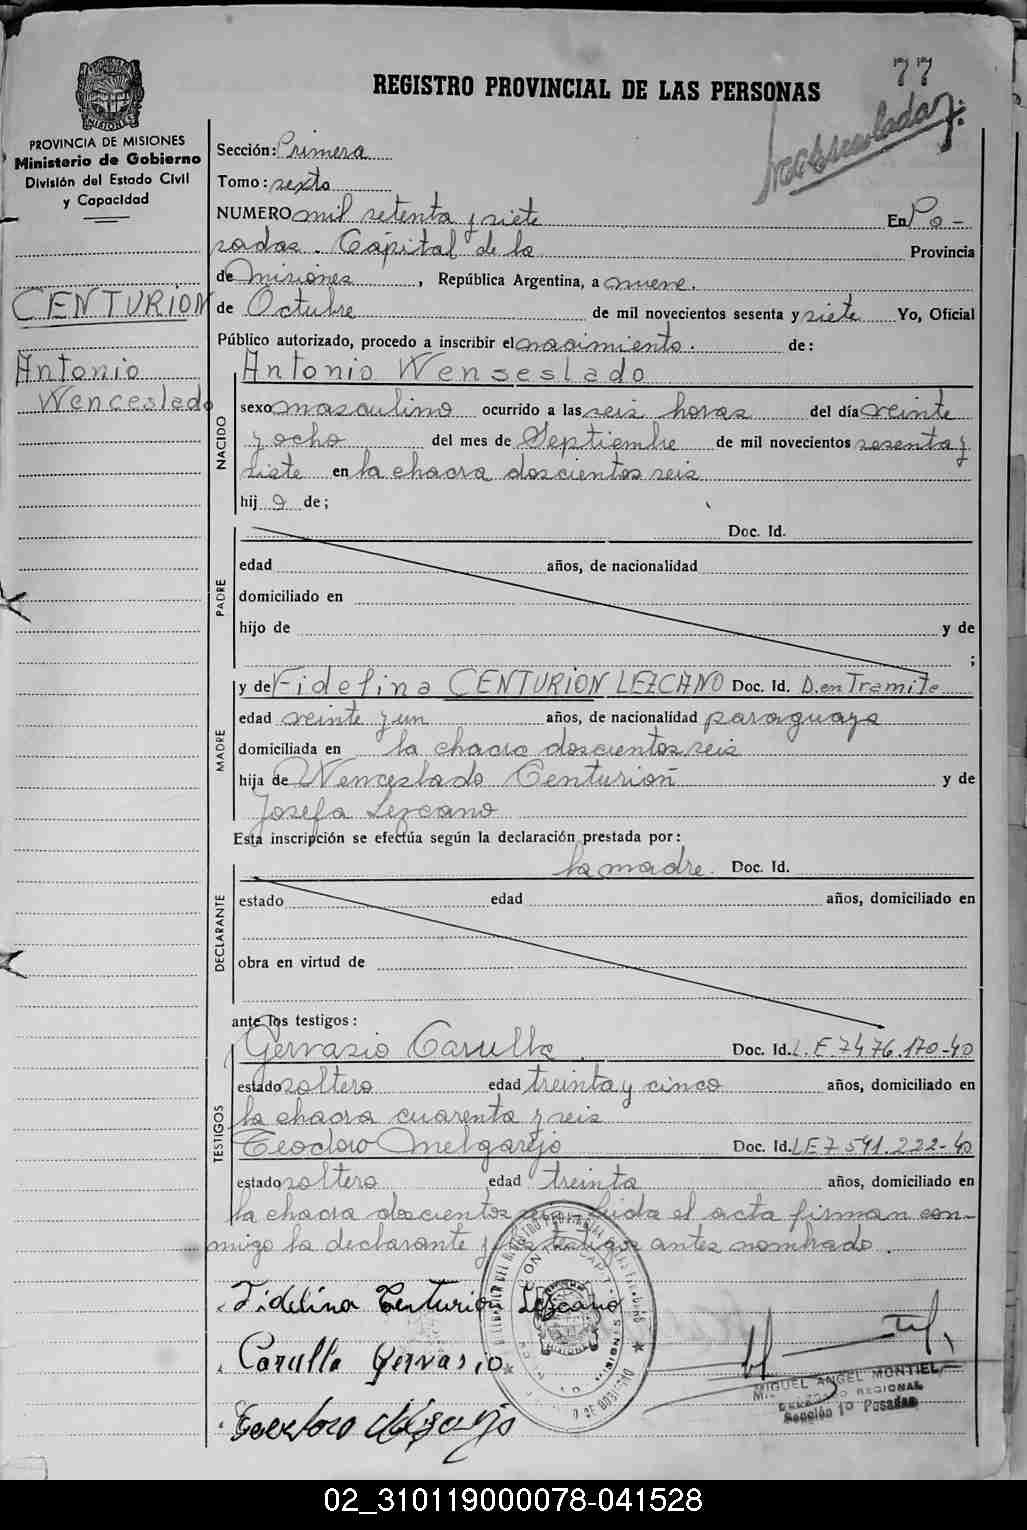 77
REGISTRO PROVINCIAL DE LAS PERSONAS
PROVINCIA DE MISIONES
Ministerio de Gobierno
División del Estado Civil
y Capacidad
CENTURION
Antonio
Wenceslado
Sección: Primera
Tomo: sexto
NUMERO mil setenta y siete En Po-
sadas. Capital de la Provincia
de Misiones, República Argentina, a nueve.
de Octubre de mil novecientos sesenta y siete Yo, Oficial
Público autorizado, procedo a inscribir el nacimiento. de:
NACIDO
Antonio Wenseslado
sexo masculino ocurrido a las seis horas del día veinte
y ocho del mes de Septiembre de mil novecientos sesenta y
siete en la chacra doscientos seis
hij o de;
PADRE
Doc. Id.
edad años, de nacionalidad
domiciliado en
hijo de y de
;
MADRE
y de Fidelina CENTURION LEZCANO Doc. Id. D. en Tramite
edad veinte y un años, de nacionalidad paraguaya
domiciliada en la chacra doscientos seis
hija de Wenceslado Centurión y de
Josefa Lezcano
Esta inscripción se efectúa según la declaración prestada por:
DECLARANTE
la madre. Doc. Id.
estado edad años, domiciliado en
obra en virtud de
ante los testigos:
TESTIGOS
Gervasio Carulla Doc. Id. L.E. 7476.170-40
estado soltero edad treinta y cinco años, domiciliado en
la chacra cuarenta y seis
Teodoro Melgarejo Doc. Id. LE 7 541.222-40
estado soltero edad treinta años, domiciliado en
la chacra doscientos seis. Leida el acta firman con-
migo la declarante y los testigos antes nombrado.
Fidelina Centurion Lezcano
Carulla Gervasio
MIGUEL ANGEL MONTIEL
DELEGADO REGIONAL
Sección 1º Posadas
02_310119000078-041528